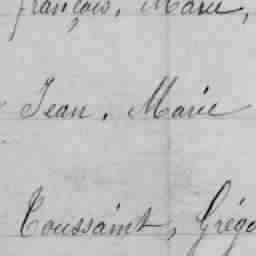 françois, Marie,
Jean, Marie
Toussaint, Grégo